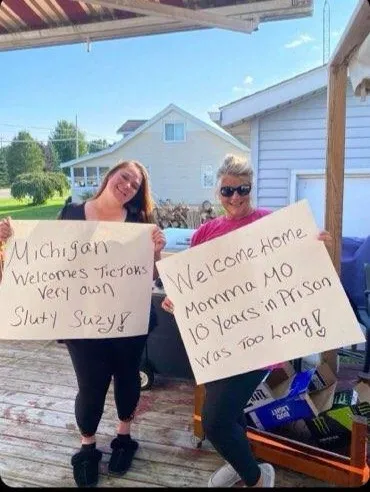 Michigan
Welcomes TicToks
Very own
Sluty Suzy!
Welcome Home
Momma Mo
10 Years in Prison
was Too Long!
BUD LIGHT